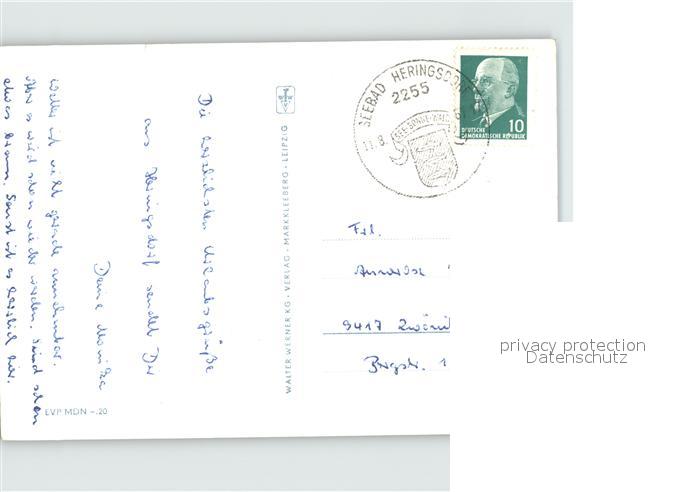 Die herzlichsten Urlaubsgrüße
aus Heringsdorf sendet Dir
Deine Monika
Wetter ist nicht gerade annehmbar.
aber es wird schon wieder werden. Sind schon
etwas braun. Sonst ist es herrlich hier.
EVP MDN -.20
WALTER WERNER KG · VERLAG · MARKKLEEBERG - LEIPZIG
SEEBAD HERINGSDORF
2255
11.8.
SEE-SONNE-WALD
10
DEUTSCHE
DEMOKRATISCHE REPUBLIK
Frl.
Annerose
9417 Zwöni
Bergstr. 1
privacy protection
Datenschutz